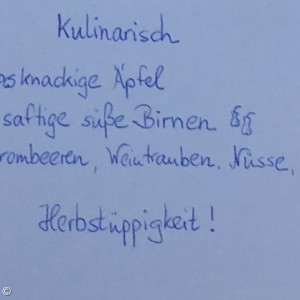 Kulinarisch
knackige Äpfel
saftige süße Birnen
rombeeren, Weintrauben. Nüsse,
Herbstüppigkeit!
©